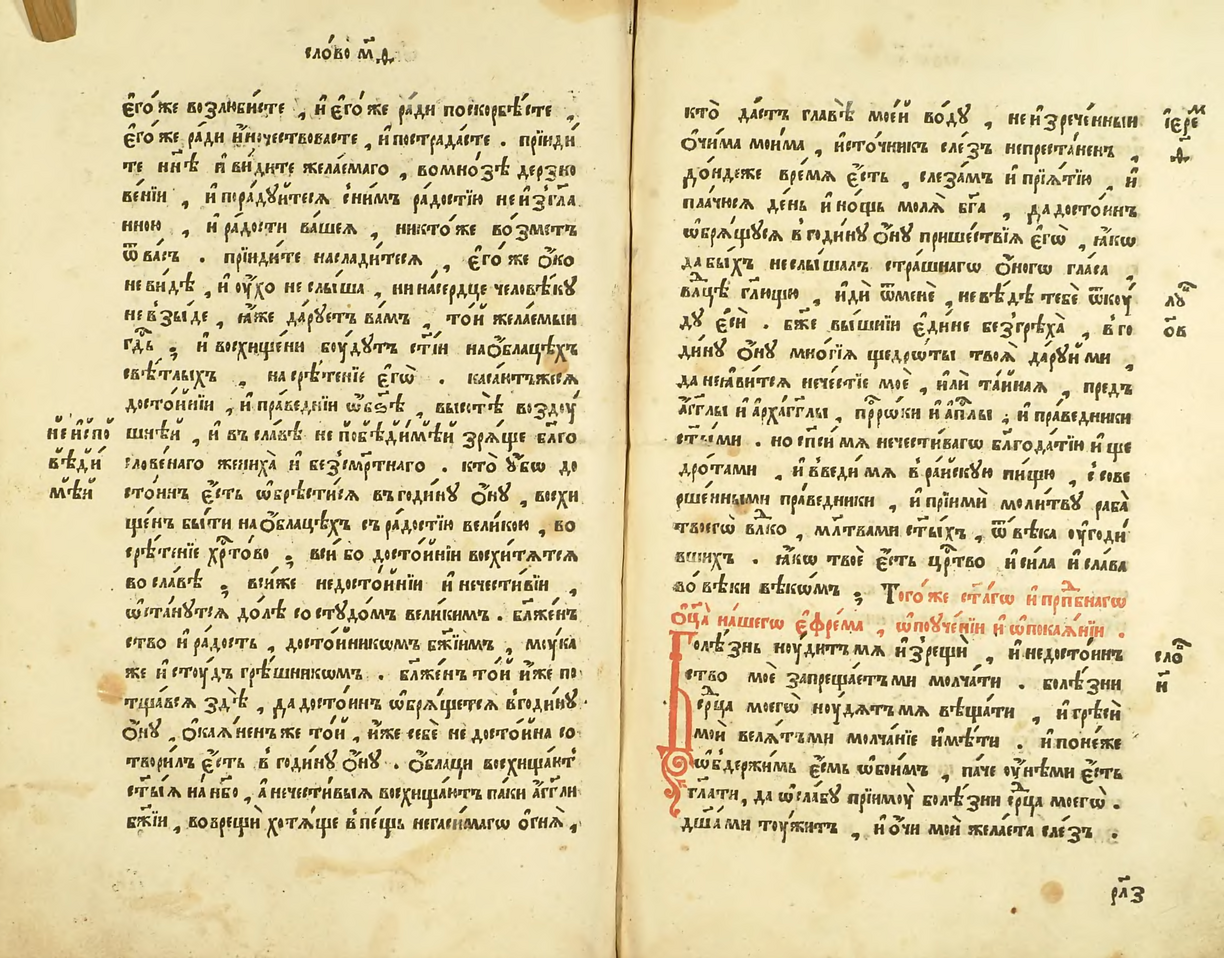 сло́во м҃ѳ
є҆го́же возлю́бисте , и҆ є҆го́же ра́ди поскорбѣ́сте ,
є҆го́же ра́ди и҆́ночествовасте , и҆ пострада́сте . прїиди́
те нн҃ѣ и҆ ви́дите жела́емаго , во мно́зѣ дерзно
ве́нїи , и҆ пора́дуйтеся с ни́мъ ра́достїю неизгла
нною , и҆ ра́дости ва́шея , никто́же во́зметъ
ѿ ва́съ . прїиди́те наслади́теся , є҆го́же ѻ҆́ко
не ви́дѣ , и҆ ѹ҆́хо не слы́ша , ни на се́рдце человѣ́кꙋ
не взы́де , ꙗ҆́же да́рꙋетъ ва́мъ , то́й жела́емыи
гдⷭ҇ь ; и҆ восхище́ни бꙋ́дꙋтъ ст҃і́и на ѻ҆́блацѣхъ
свѣ́тлыхъ , на срѣ́тенїе є҆гѡ̀ . каса́ютжеся
досто́йнїи , и҆ пра́веднїи ѡ҆ себѣ̀ , высотѣ̀ возду́
шнѣй , и҆ въ сла́вѣ не побѣди́мѣй зря́ще бл҃го
слове́наго жениха̀ и҆ безсме́ртнаго . кто̀ ꙋ҆́бѡ до
сто́инъ є҆́сть ѡ҆брѣ́стися въ годи́нꙋ ѻ҆́нꙋ , восхи
ще́нъ бы́ти на ѻ҆́блацѣхъ съ ра́достїю вели́кою , во
срѣ́тенїе хрⷭ҇то́во ; вси́ бо досто́йнїи восхи́тятся
во сла́вѣ ; вси́же недосто́йнїи и҆ нечести́вїи ,
ѡ҆ста́нꙋтся до́лѣ со стꙋдо́мъ вели́кимъ . бл҃же́н
ство и҆ ра́дость , досто́йникѡмъ бж҃їимъ , мꙋ́ка
же и҆ стꙋ́дъ грѣ́шникѡмъ . бл҃же́нъ то́й и҆́же по
тща́вся здѣ̀ , да досто́инъ ѡ҆бря́щется в годи́нꙋ
ѻ҆́нꙋ , ѻ҆кая́ненъ же то́й , и҆́же себѐ недосто́йна со
твори́лъ є҆́сть в годи́нꙋ ѻ҆́нꙋ . ѻ҆́блацы восхища́ют
ст҃ы́я на нб҃о , а҆ нечести́выя восхища́ютъ па́ки а҆́гг҃ли
бж҃їи , воврещи̂ хотя́ще в пе́щь негаси́магѡ ѻ҆гня̀ ,
неиспо
вѣди́
мѣй
кто̀ да́стъ главѣ̀ мое́й во́дꙋ , неизрече́нныи
ѻ҆чи́ма мои́ма , и҆сто́чникъ сле́зъ непреста́ненъ ,
до́ндеже вре́мя є҆́сть , слеза́мъ и҆ прїя́тїю , и҆
пла́чюся де́нь и҆ но́щь моля̀ бг҃а , да досто́инъ
ѡ҆бря́щꙋся в годи́нꙋ ѻ҆́нꙋ прише́ствїя є҆гѡ̀ , ꙗ҆́кѡ
да бы́хъ не слы́шалъ стра́шнагѡ ѻ҆́ногѡ гла́са ,
влⷣцѣ гл҃ющю , и҆дѝ ѿ менѐ , не вѣ́дѣ тебѐ ѿкꙋ́
дꙋ є҆сѝ . бж҃е вы́шнїи є҆ди́не безгрѣ́ха , в го
ди́нꙋ ѻ҆́нꙋ мно́гїя щедро́ты твоя̀ да́рꙋй ми ,
да не я҆ви́тся нече́стїе моѐ , и҆лѝ та́йная , предъ
а҆́гг҃лы и҆ а҆рха́гг҃лы , прⷪ҇ро́ки и҆ а҆пⷭ҇лы ; и҆ пра́ведники
ст҃ы́ми . но спаси́ мя нечести́вагѡ бл҃года́тїю и҆ ще
дро́тами , и҆ введи́ мя в ра́йскꙋю пи́щю , с сове
рше́нными пра́ведники , и҆ прїимѝ моли́твꙋ раба̀
твоегѡ̀ влⷣко , мл҃твами ст҃ы́хъ , ѿ вѣ́ка ѹ҆годи́
вшихъ . ꙗ҆́кѡ твоѐ є҆́сть црⷭ҇тво и҆ си́ла и҆ сла́ва
во вѣ́ки вѣкѡ́мъ ; Того́же ст҃а́гѡ и҆ прпⷣбнагѡ
ѻ҆ц҃а̀ на́шегѡ є҆фре́ма , ѡ҆ поꙋче́нїи и҆ ѡ҆ покая́нїи .
Болѣ́знь нꙋ́дитъ мя и҆зрещѝ , и҆ недосто́ин
ство моѐ запреща́етъ ми молча́ти . болѣ́зни
се́рⷣца моегѡ̀ нꙋ́дятъ мя вѣща́ти , и҆ грѣсѝ
моѝ веля́тъ ми молча́нїе и҆мѣ́ти . и҆ поне́же
ѡ҆бдержи́мь є҆́смь ѡ҆бои́мъ , па́че ѹ҆́не ми є҆́сть
гл҃ати, да ѡ҆сла́бꙋ прїимꙋ̀ болѣ́зни се́рⷣца моегѡ̀ .
дш҃а́ ми тꙋ́житъ , и҆ ѻ҆́чи моѝ жела́ета сле́зъ .
і҆ере́м
ѳ҃
лꙋ́
ѻ҆в
сло́в
н҃
рл҃з